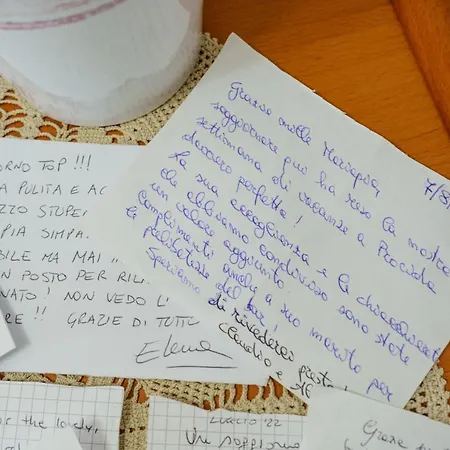 Grazie mille Mariapia
7/8
soggiornare qui ha reso la nostra
settimana di vacanze a Procida
davvero perfetta!
La sua accoglienza e le chiacchierate
che abbiamo condiviso sono state
un valore aggiunto.
Complimenti anche a suo marito per
le
del bar!
Speriamo
di rivederci presto!
Claudio e
ORNO TOP !!!
A PULITA E AC
ZZO STUPE
PIA SIMPA.
BILE MA MAI
N POSTO PER RIL
VATO! NON VEDO L'
RE!! GRAZIE DI TUTT
Elena
or the lovely,
LUGLIO '22
Un soggiorno
Grazie